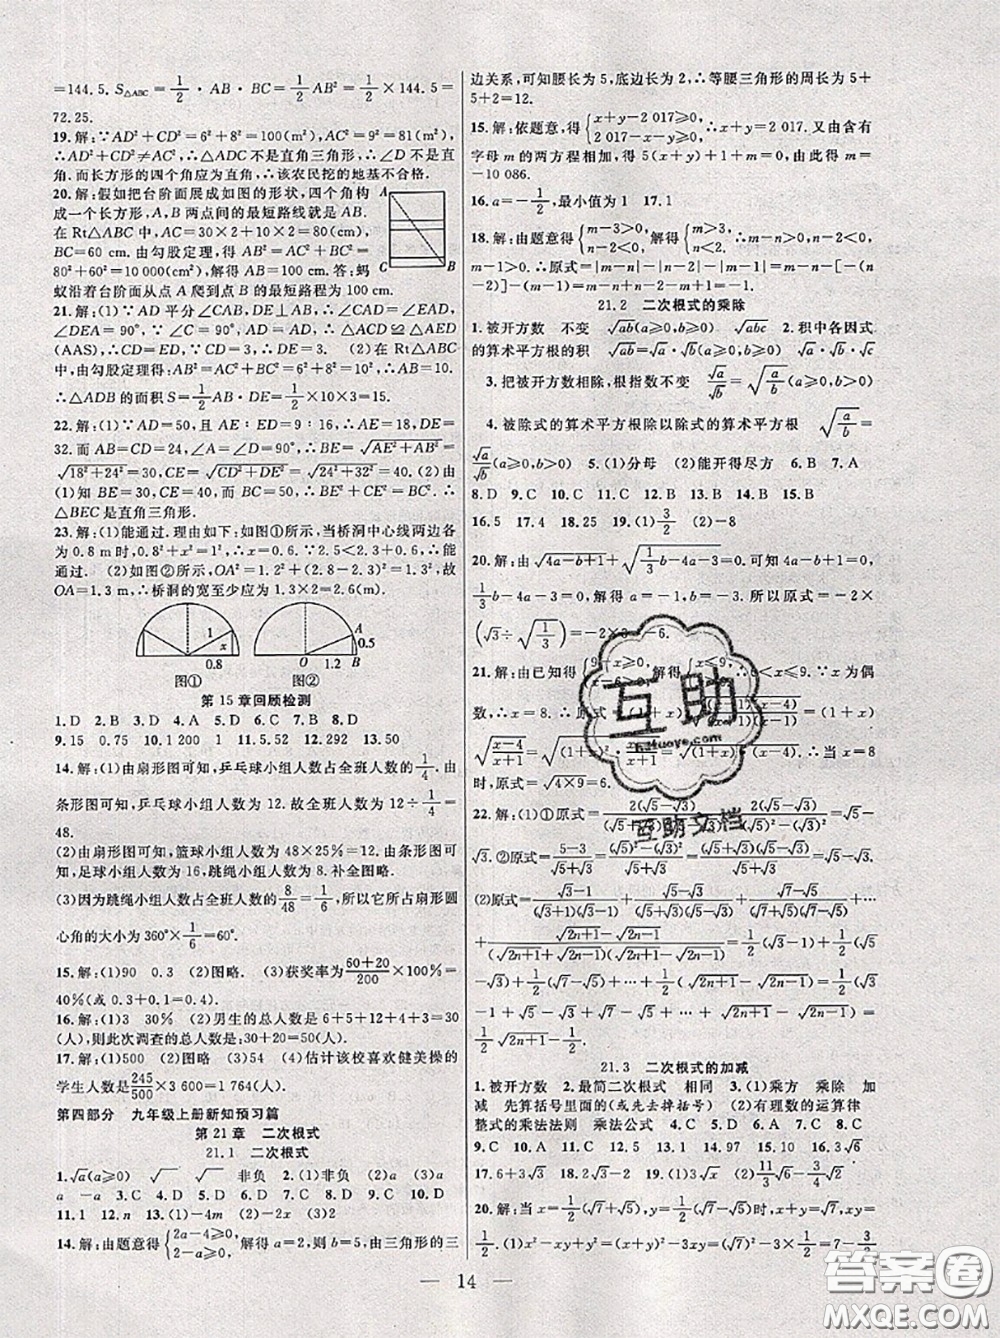 =144.5. S△ABC=1/2·AB·BC=1/2AB²=1/2×144.5=
72.25.
19.解:∵AD²+CD²=6²+8²=100(m²),AC²=9²=81(m²),
∴AD²+CD²≠AC²,∴△ADC 不是直角三角形,∴∠D 不是直
角.而长方形的四个角应为直角,∴该农民挖的地基不合格.
20.解:假如把台阶面展成如图的形状,四个角构
成一个长方形,A,B 两点间的最短路线就是 AB.
在 Rt△ABC 中,AC=30×2+10×2=80(cm),
BC=60 cm.由勾股定理,得 AB²=AC²+BC²=
80²+60²=10 000(cm²),解得 AB=100 cm.答:蚂
蚁沿着台阶面从点 A 爬到点 B 的最短路程为 100 cm.
A
C
B
21.解:(1)∵AD 平分∠CAB,DE⊥AB,∴∠CAD=∠EAD,
∠DEA=90°,∵∠C=90°,AD=AD,∴△ACD≌△AED
(AAS),∴CD=DE,∵CD=3,∴DE=3. (2)在 Rt△ABC
中,由勾股定理得:AB²=AC²+BC²=6²+8²=10²,∴AB=10.
∴△ADB 的面积 S=1/2AB·DE=1/2×10×3=15.
22.解:(1)∵AD=50,且 AE∶ED=9∶16,∴AE=18,DE=
32.而 AB=CD=24,∠A=∠D=90°,∴BE=√(AE²+AB²)=
√(18²+24²)=30,CE=√(CD²+DE²)=√(24²+32²)=40.(2)由
(1)知:BE=30,CE=40,又 BC=50,∴BE²+CE²=BC²,∴
△BEC 是直角三角形.
23.解:(1)能通过.理由如下:如图①所示,当桥洞中心线两边各
为 0.8 m 时,由勾股定理得 x²+0.8²=1²,∴x=0.6,∴能
通过. (2)如图②所示,OA²=1.2²+(2.8-2.3)²=1.3²,故
OA=1.3 m,∴桥洞的宽至少应为 1.3×2=2.6(m).
1
x
0.8
A
0.5
O
1.2
B
图① 图②
第 15 章回顾检测
1.D 2.D 3.C 4.A 5.D 6.C 7.B 8.D
9.15 0.75 10.1 200 1 11.5.52 12.292 13.50
14.解:(1)由扇形图可知,乒乓球小组人数占全班人数的1/4.由
条形图可知,乒乓球小组人数为 12.故全班人数为 12÷1/4=
48.
(2)由扇形图可知,篮球小组人数为 48×25%=12.由条形图可知,
足球小组人数为 16,跳绳小组人数为 8.补全图略.
(3)因为跳绳小组人数占全班人数的8/48=1/6,所以它所占扇形圆
心角的大小为 360°×1/6=60°.
15.解:(1)90 0.3 (2)图略. (3)获奖率为(60+20)/200×100%=
40%(或 0.3+0.1=0.4).
16.解:(1)3 30% (2)男生的总人数是 6+5+12+4+3=30
(人),则此次调查的总人数是:30+20=50(人).
17.解:(1)500 (2)图略 (3)54 (4)估计该校喜欢健美操的
学生人数是245/500×3 600=1 764(人).
第四部分 九年级上册新知预习篇
第 21 章 二次根式
21.1 二次根式
1.√a(a≥0) √ √ 非负 2.(1)非负 (2)a (3)a
a -a 3.C 4.D 5.D 6.D 7.A 8.C 9.C 10.D
11.1 12.n 13.(1)-4m (2)-2x (3)2
14.解:由题意得{2a-4≥0, 2-a≥0, 解得 a=2,则 b=5,由三角形的三
边关系,可知腰长为 5,底边长为 2,∴等腰三角形的周长为 5+
5+2=12.
15.解:依题意,得{x+y-2 017≥0, 2 017-x-y≥0, ∴x+y=2 017.又由含有
字母 m 的两方程相加,得 5(x+y)+1+m=0,由此得 m=
-10 086.
16.a=-1/2,最小值为 1 17.1
18.解:由题意得{m-3>0, n-2<0, 解得{m>3, n<2. ∴m-n>0,n-2<0,
m-1>0.∴原式=|m-n|-|n-2|-|m-1|=m-n-[-(n
-2)]-(m-1)=m-n+n-2-m+1=-1.
21.2 二次根式的乘除
1.被开方数 不变 √ab(a≥0,b≥0) √abc 2.积中各因式
的算术平方根的积 √ab=√a·√b(a≥0,b≥0) √a·√b·√c
3.把被开方数相除,根指数不变 √a/√b=√(a/b)(a≥0,b>0)
4.被除式的算术平方根除以除式的算术平方根 √(a/b)=
√a/√b(a≥0,b>0) 5.(1)分母 (2)能开得尽方 6.B 7.A
8.D 9.C 10.D 11.C 12.D 13.C 14.C 15.B
16.5 17.4 18.25 19.(1)3/2 (2)-8
20.解:由√(4a-b+1)+√(1/3b-4a-3)=0.可知 4a-b+1=0,
1/3b-4a-3=0,解得 a=-1,b=-3.所以原式=-2×
(√3÷√(1/3))=-2×3=-6.
21.解:由已知得{9-x≥0, x-6>0, 解得{x≤9, <x≤9.∵x 为偶
数,∴x=8.∴原式=(1+x)
√((x-4)/(x+1))= (x-4).∴当 x=8
时,原式=√(4×9)=6.
22.解:(1)①原式=2(√5-√3)/ =2(√5-√3)/((√5)²-(√3)²)=√5-
√3.②原式=(5-3)/(√5+√3)=((√5)²-(√3)²)/(√5+√3)= =√5-√3.
(2)原式=(√3-1)/((√3+1)(√3-1))+(√5-√3)/((√5+√3)(√5-√3))+(√7-√5)/((√7+√5)(√7-√5))+…
+(√(2n+1)-√(2n-1))/((√(2n+1)+√(2n-1))(√(2n+1)-√(2n-1)))=1/2(√3-1)+1/2(√5
-√3)+1/2(√7-√5)+…+1/2(√(2n+1)-√(2n-1))=1/2(√3
-1+√5-√3+√7-√5+…+√(2n+1)-√(2n-1))=
1/2√(2n+1)-1/2.
21.3 二次根式的加减
1.被开方数 2.最简二次根式 相同 3.(1)乘方 乘除 加
减 先算括号里面的(或先去掉括号) (2)有理数的运算律
整式的乘法法则 乘法公式 4.C 5.C 6.D 7.C 8.C
9.C 10.A 11.C 12.A 13.B 14.2√3 15.3√x 16.3√6
17.6+3√3 18.2√3-2√2 19.(1)2 (2)11/3√3-3/4√6
20.解:当 x=1/2(√7+√5),y=1/2(√7-√5)时,x+y=√7,xy=
1/2.(1)x²-xy+y²=(x+y)²-3xy=(√7)²-3×1/2=
— 14 —
互助
互助文档
答案圈
MXQE.COM